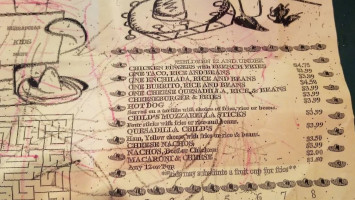 CHILDREN 12 AND UNDER
CHICKEN FINGERS with FRENCH FRIES $4.75
ONE TACO, RICE AND BEANS $3.99
ONE ENCHILADA, RICE AND BEANS $3.99
ONE BURRITO, RICE AND BEANS $3.99
ONE CHEESE QUESADILLA, RICE, & BEANS $3.99
CHEESEBURGER & FRIES $3.99
HOT DOG $3.99
Served on a tortilla with choice of fries, rice or beans.
CHILD'S MOZZARELLA STICKS $3.99
Four sticks with fries or rice and beans.
QUESADILLA CHILD'S $3.99
Ham, Yellow cheese with fries or rice & beans.
CHEESE NACHOS
NACHOS, Beef or Chicken
MACARONI & CHEESE
substitute a fruit cup for fries**
KIDS
5 6 7 8